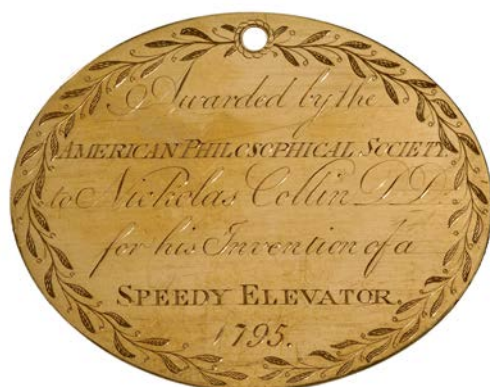 Awarded by the
AMERICAN PHILOSOPHICAL SOCIETY
to Nickolas Collin D D.
for his Invention of a
SPEEDY ELEVATOR.
1795.